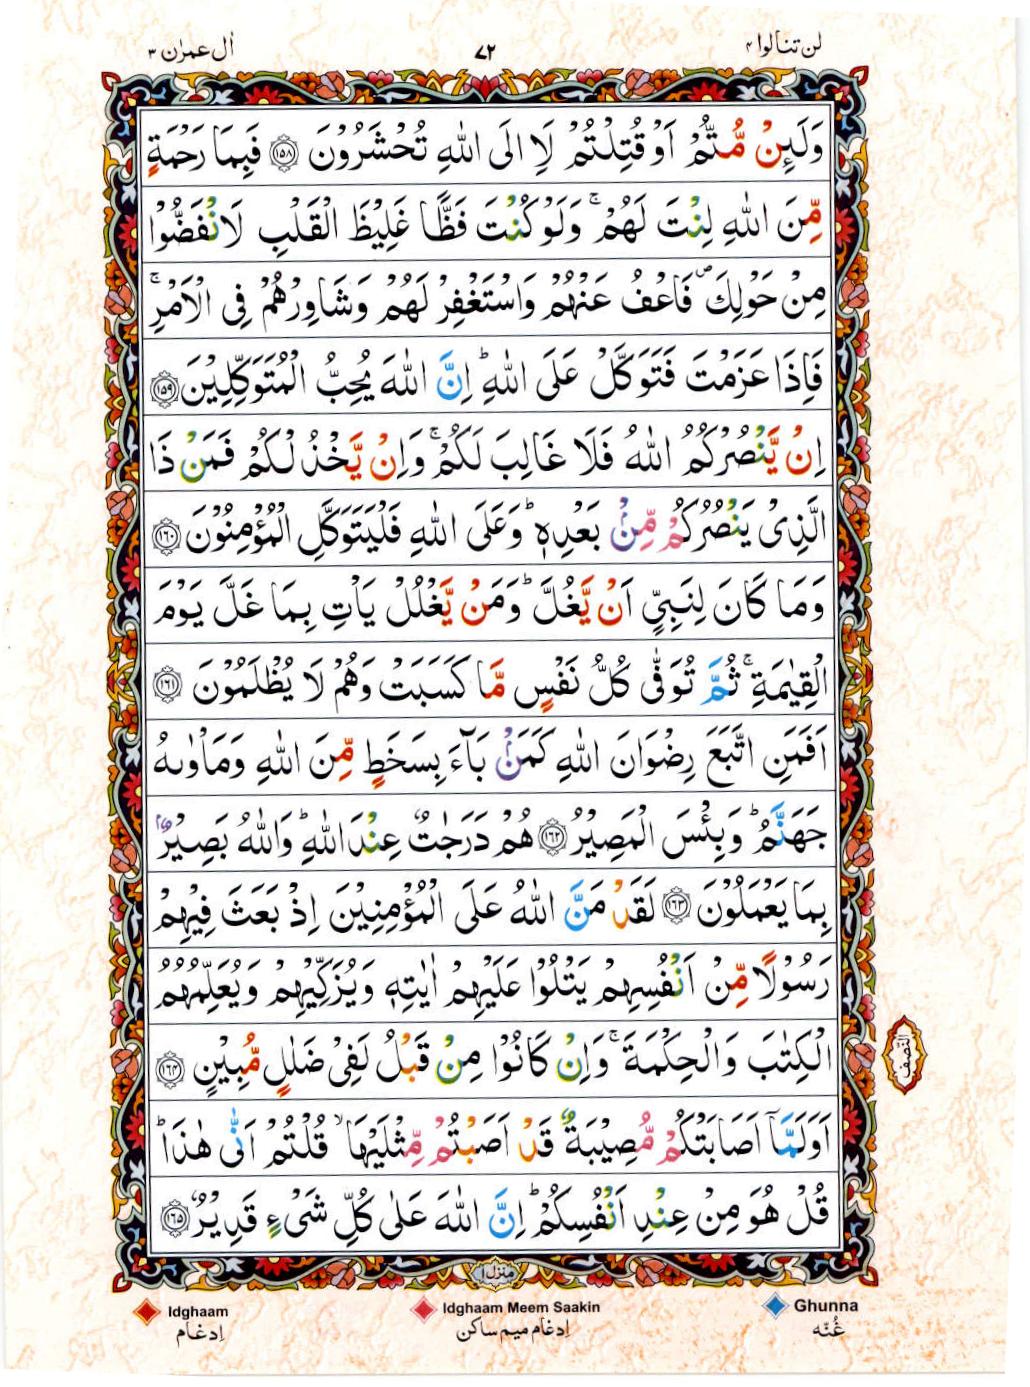 لن تنالوا ۴ ۷۲ اٰل عمرٰن ۳
وَلَئِنۡ مُّتُّمۡ اَوۡ قُتِلۡتُمۡ لَاِ الَى اللّٰهِ تُحۡشَرُوۡنَ ﴿۱۵۸﴾ فَبِمَا رَحۡمَةٍ
مِّنَ اللّٰهِ لِنۡتَ لَهُمۡۚ وَلَوۡ كُنۡتَ فَظًّا غَلِيۡظَ الۡقَلۡبِ لَانۡفَضُّوۡا
مِنۡ حَوۡلِكَ ۖ فَاعۡفُ عَنۡهُمۡ وَاسۡتَغۡفِرۡ لَهُمۡ وَشَاوِرۡهُمۡ فِى الۡاَمۡرِۚ
فَاِذَا عَزَمۡتَ فَتَوَكَّلۡ عَلَى اللّٰهِؕ اِنَّ اللّٰهَ يُحِبُّ الۡمُتَوَكِّلِيۡنَ ﴿۱۵۹﴾
اِنۡ يَّنۡصُرۡكُمُ اللّٰهُ فَلَا غَالِبَ لَكُمۡۚ وَاِنۡ يَّخۡذُلۡكُمۡ فَمَنۡ ذَا
الَّذِىۡ يَنۡصُرُكُمۡ مِّنۡۢ بَعۡدِهٖؕ وَعَلَى اللّٰهِ فَلۡيَتَوَكَّلِ الۡمُؤۡمِنُوۡنَ ﴿۱۶۰﴾
وَمَا كَانَ لِنَبِىٍّ اَنۡ يَّغُلَّؕ وَمَنۡ يَّغۡلُلۡ يَاۡتِ بِمَا غَلَّ يَوۡمَ
الۡقِيٰمَةِۚ ثُمَّ تُوَفّٰى كُلُّ نَفۡسٍ مَّا كَسَبَتۡ وَهُمۡ لَا يُظۡلَمُوۡنَ ﴿۱۶۱﴾
اَفَمَنِ اتَّبَعَ رِضۡوَانَ اللّٰهِ كَمَنۡۢ بَآءَ بِسَخَطٍ مِّنَ اللّٰهِ وَمَاۡوٰٮهُ
جَهَنَّمُؕ وَبِئۡسَ الۡمَصِيۡرُ ﴿۱۶۲﴾ هُمۡ دَرَجٰتٌ عِنۡدَ اللّٰهِؕ وَاللّٰهُ بَصِيۡرٌۢ
بِمَا يَعۡمَلُوۡنَ ﴿۱۶۳﴾ لَقَدۡ مَنَّ اللّٰهُ عَلَى الۡمُؤۡمِنِيۡنَ اِذۡ بَعَثَ فِيۡهِمۡ
رَسُوۡلًا مِّنۡ اَنۡفُسِهِمۡ يَتۡلُوۡا عَلَيۡهِمۡ اٰيٰتِهٖ وَيُزَكِّيۡهِمۡ وَيُعَلِّمُهُمُ
الۡكِتٰبَ وَالۡحِكۡمَةَۚ وَاِنۡ كَانُوۡا مِنۡ قَبۡلُ لَفِىۡ ضَلٰلٍ مُّبِيۡنٍ ﴿۱۶۴﴾
اَوَلَمَّاۤ اَصَابَتۡكُمۡ مُّصِيۡبَةٌ قَدۡ اَصَبۡتُمۡ مِّثۡلَيۡهَاۙ قُلۡتُمۡ اَنّٰى هٰذَاؕ
قُلۡ هُوَ مِنۡ عِنۡدِ اَنۡفُسِكُمۡؕ اِنَّ اللّٰهَ عَلٰى كُلِّ شَىۡءٍ قَدِيۡرٌ ﴿۱۶۵﴾
النّصف
منزل ۱
Idghaam Idghaam Meem Saakin Ghunna
اِدغام اِدغام میم ساکن غُنّه